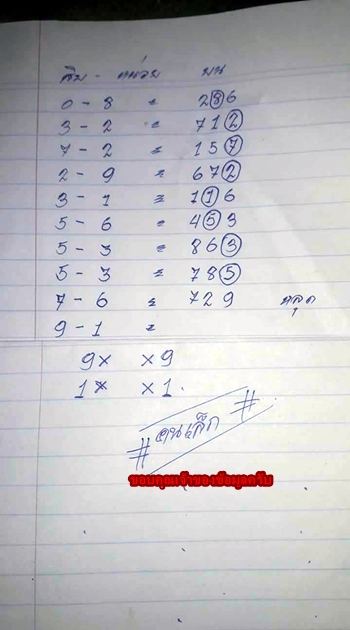 สิบ - หน่วย บน
0 - 8 = 286
3 - 2 = 712
7 - 2 = 157
2 - 9 = 672
3 - 1 = 116
5 - 6 = 453
5 - 3 = 863
5 - 3 = 785
7 - 6 = 729 หลุด
9 - 1 =
9x x9
1x x1.
# คนเล็ก #
ขอบคุณเจ้าของข้อมูลครับ